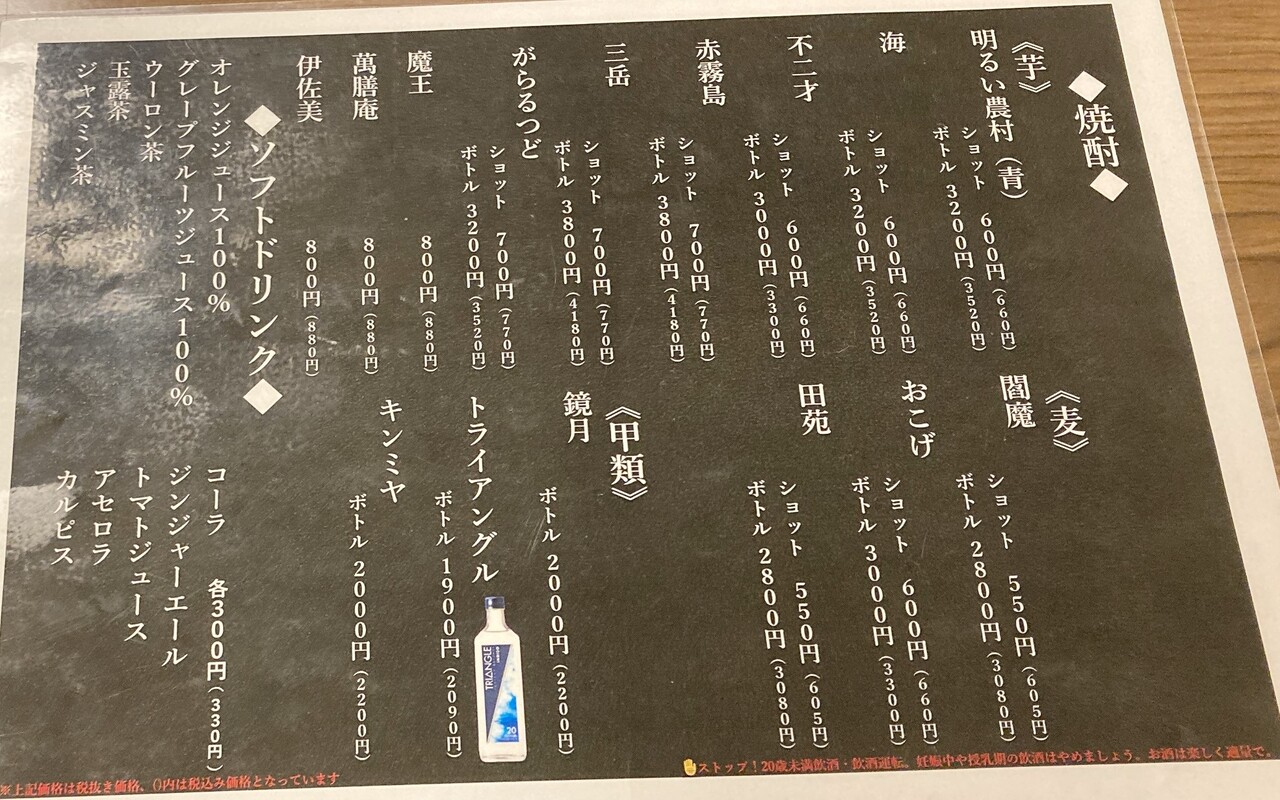 ◆焼酎◆
《芋》
明るい農村（青）
ショット 600円（660円）
ボトル 3200円（3520円）
海
ショット 600円（660円）
ボトル 3200円（3520円）
不二才
ショット 600円（660円）
ボトル 3000円（3300円）
赤霧島
ショット 700円（770円）
ボトル 3800円（4180円）
三岳
ショット 700円（770円）
ボトル 3800円（4180円）
がらるつど
ショット 700円（770円）
ボトル 3200円（3520円）
魔王
800円（880円）
萬膳庵
800円（880円）
伊佐美
800円（880円）
《麦》
閻魔
ショット 550円（605円）
ボトル 2800円（3080円）
おこげ
ショット 600円（660円）
ボトル 3000円（3300円）
田苑
ショット 550円（605円）
ボトル 2800円（3080円）
《甲類》
鏡月
ボトル 2000円（2200円）
トライアングル
ボトル 1900円（2090円）
TRIANGLE
20
キンミヤ
ボトル 2000円（2200円）
◆ソフトドリンク◆
オレンジジュース100%
グレープフルーツジュース100%
ウーロン茶
玉露茶
ジャスミン茶
コーラ 各300円（330円）
ジンジャーエール
トマトジュース
アセロラ
カルピス
ストップ！20歳未満飲酒・飲酒運転。妊娠中や授乳期の飲酒はやめましょう。お酒は楽しく適量で。
※上記価格は税抜き価格、()内は税込み価格となっています